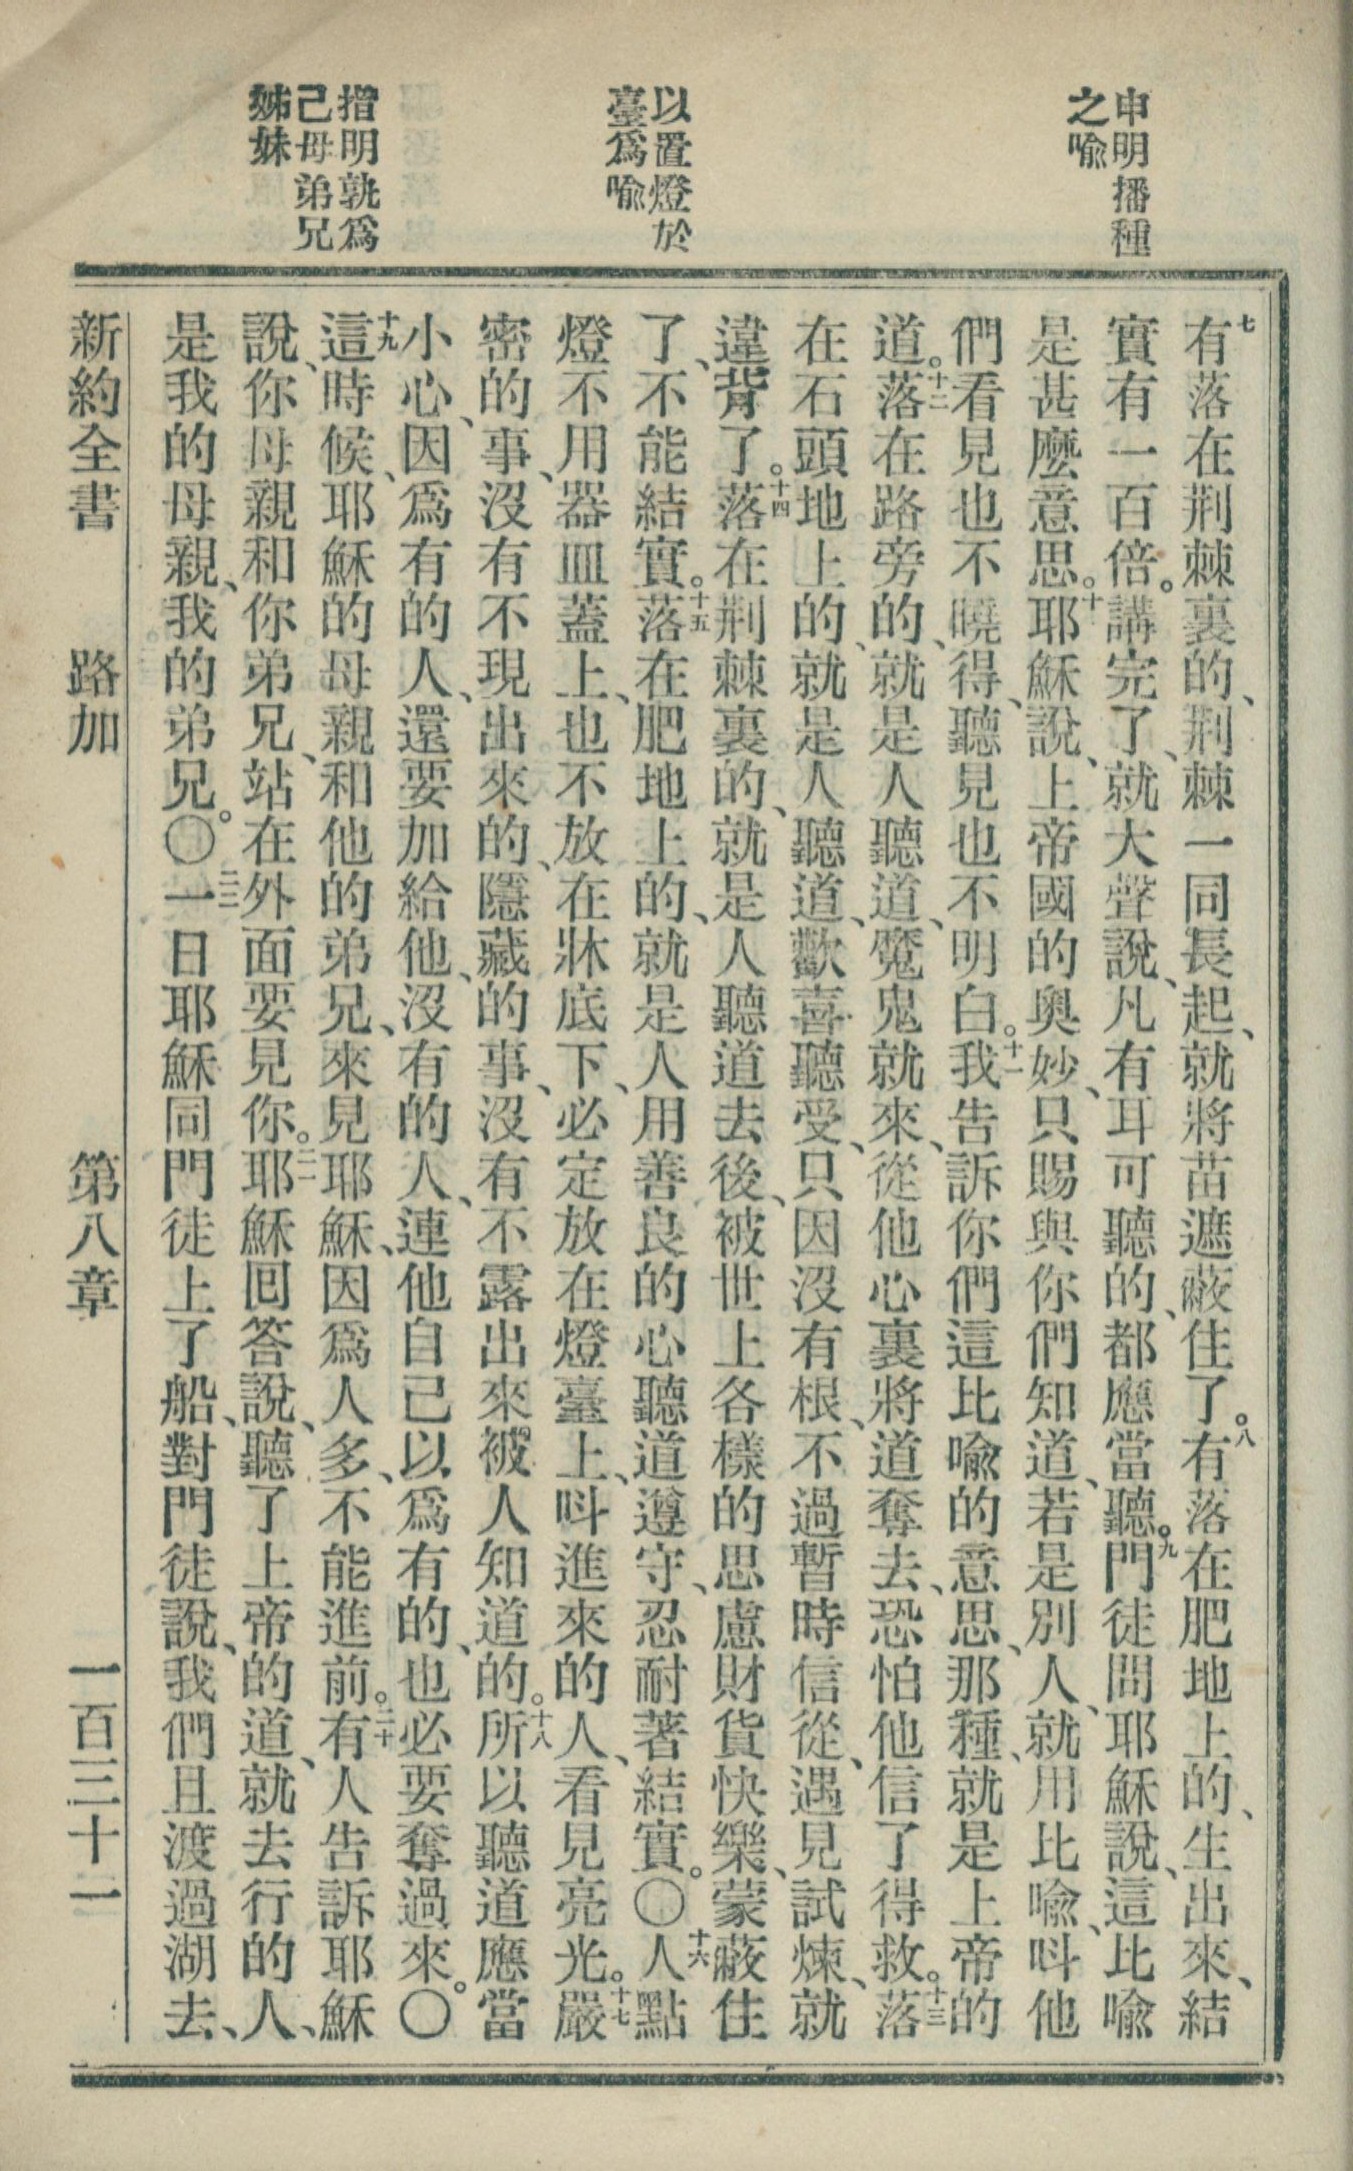 申明播種
之喩
以置燈於
臺爲喩
指明孰爲
己母弟兄
姊妹
七有落在荆棘裏的、荆棘一同長起、就將苗遮蔽住了。八有落在肥地上的、生出來、結
實有一百倍。講完了、就大聲說、凡有耳可聽的、都應當聽。九門徒問耶穌說、這比喩
是甚麼意思。十耶穌說、上帝國的奧妙、只賜與你們知道、若是別人、就用比喩、呌他
們看見也不曉得、聽見也不明白。十一我告訴你們這比喩的意思、那種、就是上帝的
道。十二落在路旁的、就是人聽道、魔鬼就來、從他心裏將道奪去、恐怕他信了得救。十三落
在石頭地上的、就是人聽道、歡喜聽受、只因沒有根、不過暫時信從、遇見試煉、就
違背了。十四落在荆棘裏的、就是人聽道去後、被世上各樣的思慮財貨快樂、蒙蔽住
了、不能結實。十五落在肥地上的、就是人用善良的心聽道、遵守、忍耐著結實。〇十六人點
燈不用器皿蓋上、也不放在牀底下、必定放在燈臺上、呌進來的人、看見亮光。十七嚴
密的事、沒有不現出來的、隱藏的事、沒有不露出來、被人知道的。十八所以聽道應當
小心、因爲有的人、還要加給他、沒有的人、連他自己以爲有的、也必要奪過來。〇
十九這時候、耶穌的母親和他的弟兄、來見耶穌、因爲人多、不能進前。二十有人告訴耶穌
說、你母親和你弟兄、站在外面要見你。二一耶穌回答說、聽了上帝的道、就去行的人、
是我的母親、我的弟兄。〇二二一日耶穌同門徒上了船、對門徒說、我們且渡過湖去、
新約全書　路加　第八章　一百三十一